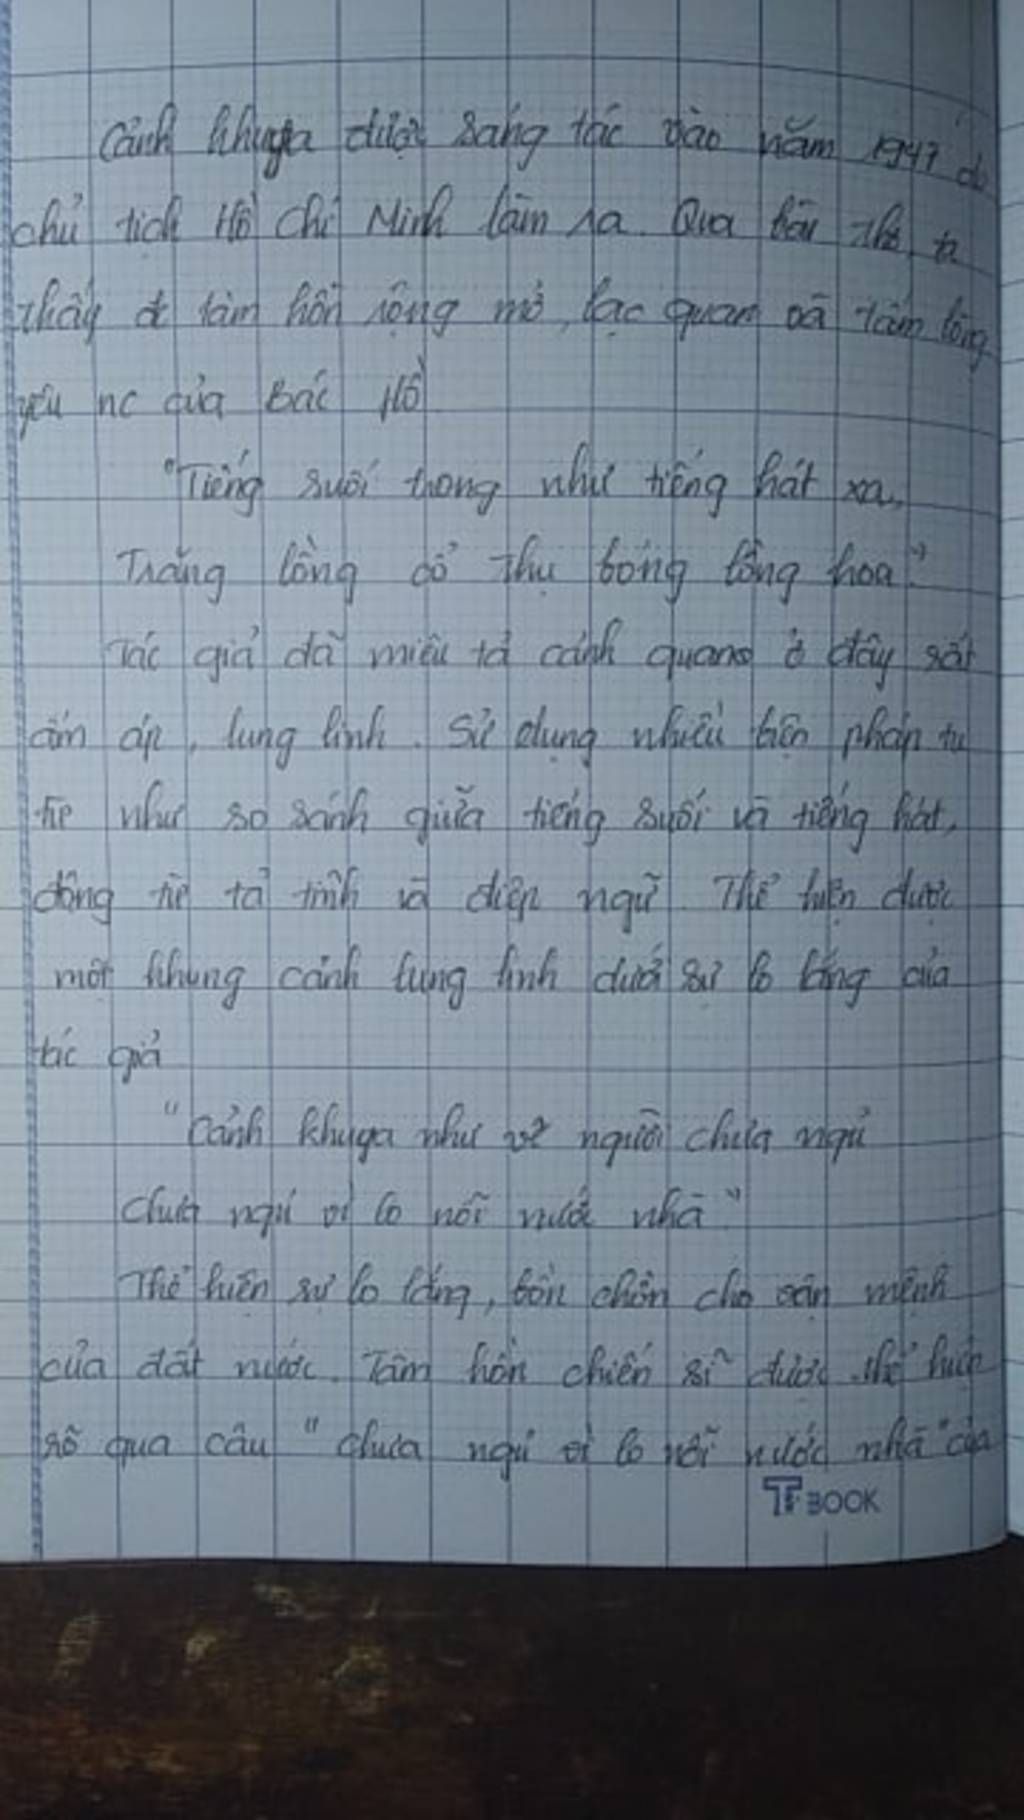 Cảnh khuya được sáng tác vào năm 1947 do
chủ tịch Hồ Chí Minh làm ra. Qua bài thơ, ta
thấy đc tâm hồn rộng mở, lạc quan và tấm lòng
yêu nc của Bác Hồ
"Tiếng suối trong như tiếng hát xa,
Trăng lồng cổ thụ bóng lồng hoa"
Tác giả đã miêu tả cảnh quang ở đây rất
ấm áp, lung linh. Sử dụng nhiều biện pháp tu
từ như so sánh giữa tiếng suối và tiếng hát,
động từ tả tình và điệp ngữ. Thể hiện được
một khung cảnh lung linh dưới sự lo lắng của
tác giả
"Cảnh khuya như vẽ người chưa ngủ
Chưa ngủ vì lo nỗi nước nhà"
Thể hiện sự lo lắng, bồn chồn cho vận mệnh
của đất nước. Tâm hồn chiến sĩ được thể hiện
rõ qua câu "chưa ngủ vì lo nỗi nước nhà" của
TP BOOK